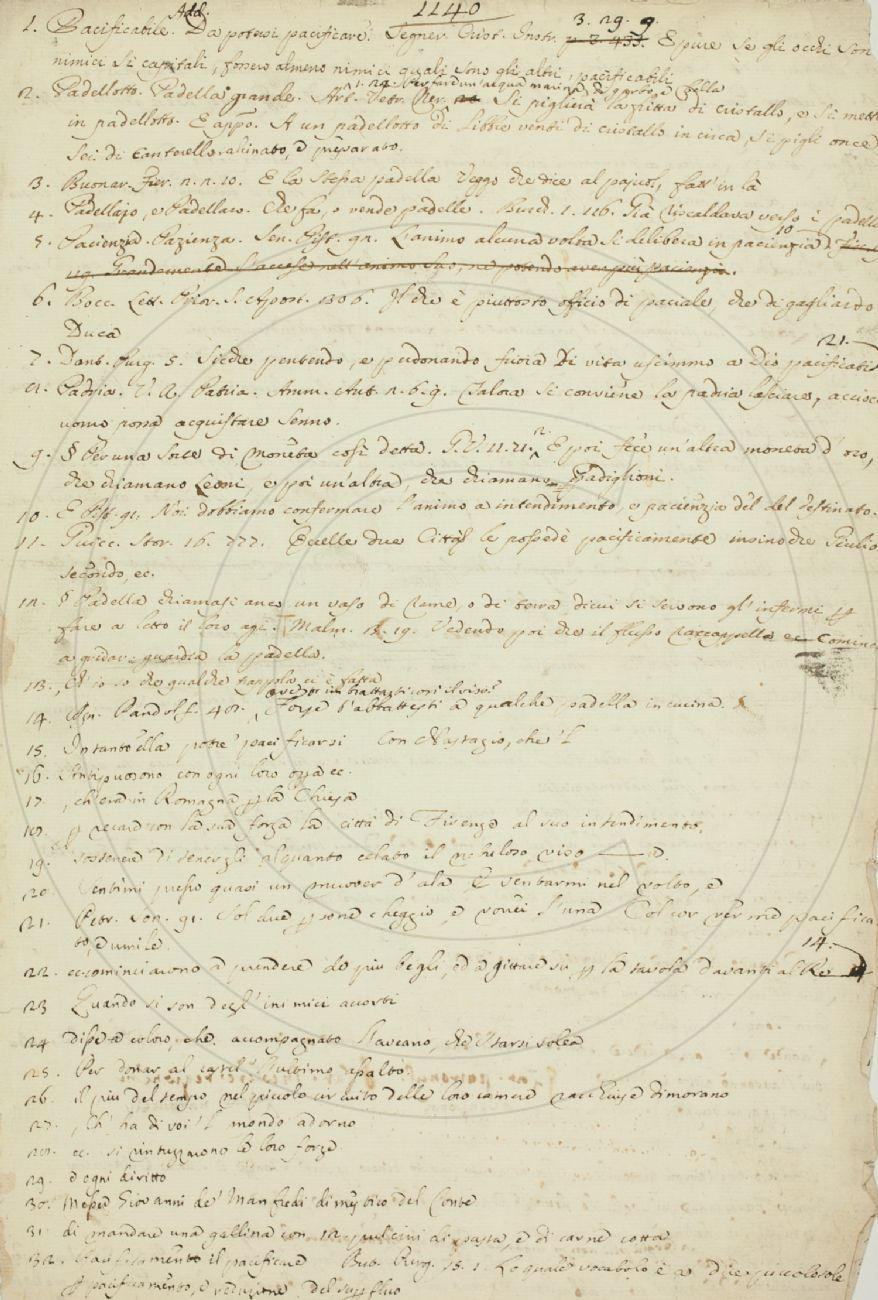 1140
1. Pacificabile. Add. Da potersi pacificare. Segner. Crist. Instr. 3. 29. 9. E pure se gli occhi son
nimici sì capitali, fossero almeno nimici quali sono gli altri, pacificabili
2. Padellotto. Padella grande. Art. Vetr. Ner. 1. 29. Per fare un'acqua marina Si piglierà la fritta di cristallo, e si mette
in padellotto. E appo. A un padellotto di libbre venti di cristallo in circa, si pigli once
sei di cantorello, e preparato.
3. Buonar. Fier. E la stessa padella Veggo che dice al pajuol, fatt' in là
4. Padellajo, e Padellaro. Che fa, o vende padelle. Burch. 1. 116. Già riscaldava verso i padella
5. Pacienzia. Pazienza. Sen. Pist. L'animo alcuna volta si delibera in pacienzia 10
Grandemente s'accese nell'animo suo, non potendo aver più pacienzia.
6. Bocc. Lett. Prior. S. Apost. 306. Il che è piuttosto officio di paciale, che di gagliardo
Duca 21.
7. Dant. Purg. 5. Sicchè pentendo, e perdonando fuora Di vita uscimmo a Dio pacificati
Padria. V. A. Patria. Amm. Ant. Talora si conviene la padria lasciare, acciocc
uomo possa acquistare senno.
9. § Per una sorte di moneta così detta. G. V. 11. 71. 2. E poi fece un'altra moneta d'oro,
che chiamano Leoni, e poi un'altra, che chiamano Padiglioni.
10. E Pist. 91. Noi dobbiamo confermare l'animo a intendimento, e pacienzia del destinato.
11. Guicc. Stor. 16. 777. Quelle due Città le possedè pacificamente insino che Giulio
secondo, ec.
12. § Padella chiamasi anco un vaso di rame, o di terra, di cui si servono gl'infermi p
fare a letto il loro agi. Malm. 19. Vedendo poi che il flusso raccappella Cominc
a gridar: guarda la padella.
13. E' io so che qualche trappola ci è fatta
14. Agn. Pandolf. Forse t'abbattesti a qualche padella in cucina.
aver imbrattasti così il viso?
15. Intanto ella potrè pacificarsi Con Anastagio, che 'l
16. Antipuosono con ogni loro oza ec.
17. , ch'era in Romagna p la Chiesa
18. p recare con la sua forza la città di Firenze al suo intendimento.
19. sostenere di tenergli alquanto celato il nebuloso viso
20. Senti'mi presso quasi un muover d'ala E ventarmi nel volto, e
21. Petr. son. 91. Sol due persone cheggio, e vorrei l'una Col cor ver me pacifica
to, e umile. 14.
22. ec. cominciarono a prendere de più begli, ed a gittare su p la tavola davanti al Re
23 Quando si son degl'inimici accorti
24 disse a coloro, che accompagnato l'aveano, che starsi solea
25. Per donar al castel l'ultimo assalto.
26. il più del tempo nel piccolo circuito delle loro camere racchiuse dimorano
27. , Ch'ha di voi 'l mondo adorno
28. ec. si rintuzzarono le loro forze
29. e ogni diritto
30. Messer Giovanni de' Manfredi dimestico del Conte
31 di mandare una gallina con 12 pulcini di pasta, e di carne cotta
32. Pacificamento il pacificare But. Purg. 15. 1. Lo quale vocabolo è a dire
pacificamento, e reduzione del superfluo